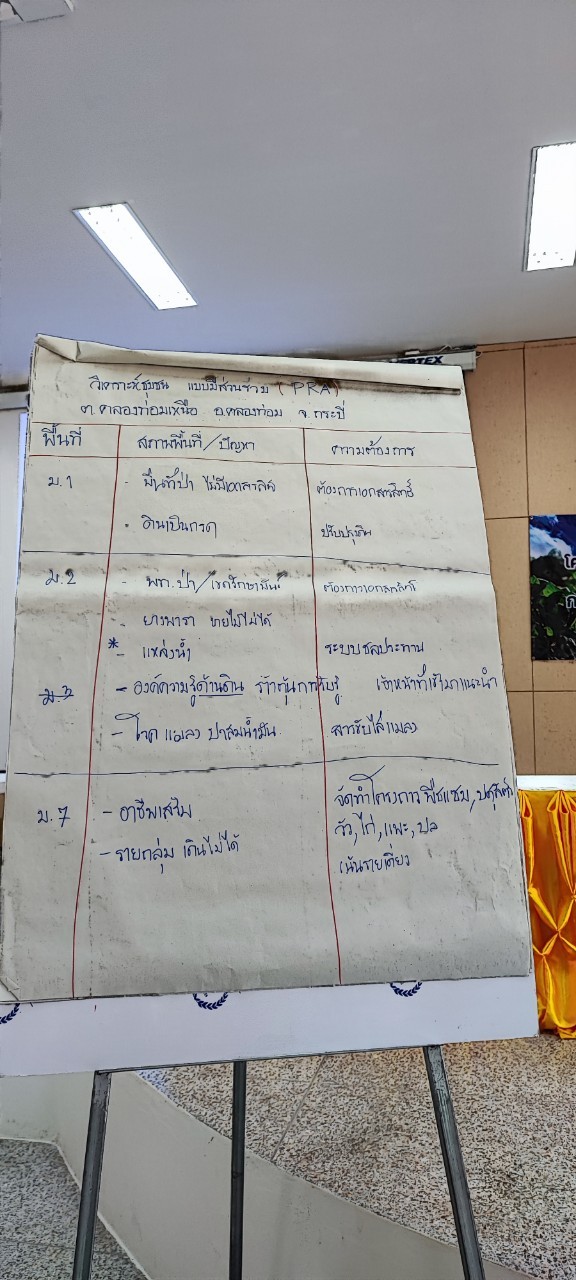 วิเคราะห์ชุมชน แบบมีส่วนร่วม (PRA)
ต.คลองท่อมเหนือ อ.คลองท่อม จ.กระบี่
พื้นที่ สภาพพื้นที่/ปัญหา ความต้องการ
ม.1 - พื้นที่ป่า ไม่มีเอกสารสิทธิ์ ต้องการเอกสารสิทธิ์
- ดินเป็นกรด ปรับปรุงดิน
ม.2 - พท.ป่า/เขตรักษาพันธุ์ ต้องการเอกสารสิทธิ์
- ยางพารา ขายไม้ไม่ได้
* - แหล่งน้ำ ระบบชลประทาน
ม.3 - องค์ความรู้ด้านดิน การรับรู้ เจ้าหน้าที่เข้ามาแนะนำ
- โรค แมลง ปาล์มน้ำมัน สารขับไล่แมลง
ม.7 - อาชีพเสริม จัดทำโครงการ พืชแซม, ปศุสัตว์
วัว, ไก่, แพะ, ปลา
- รายกลุ่ม เดินไม่ได้ เน้นรายเดี่ยว